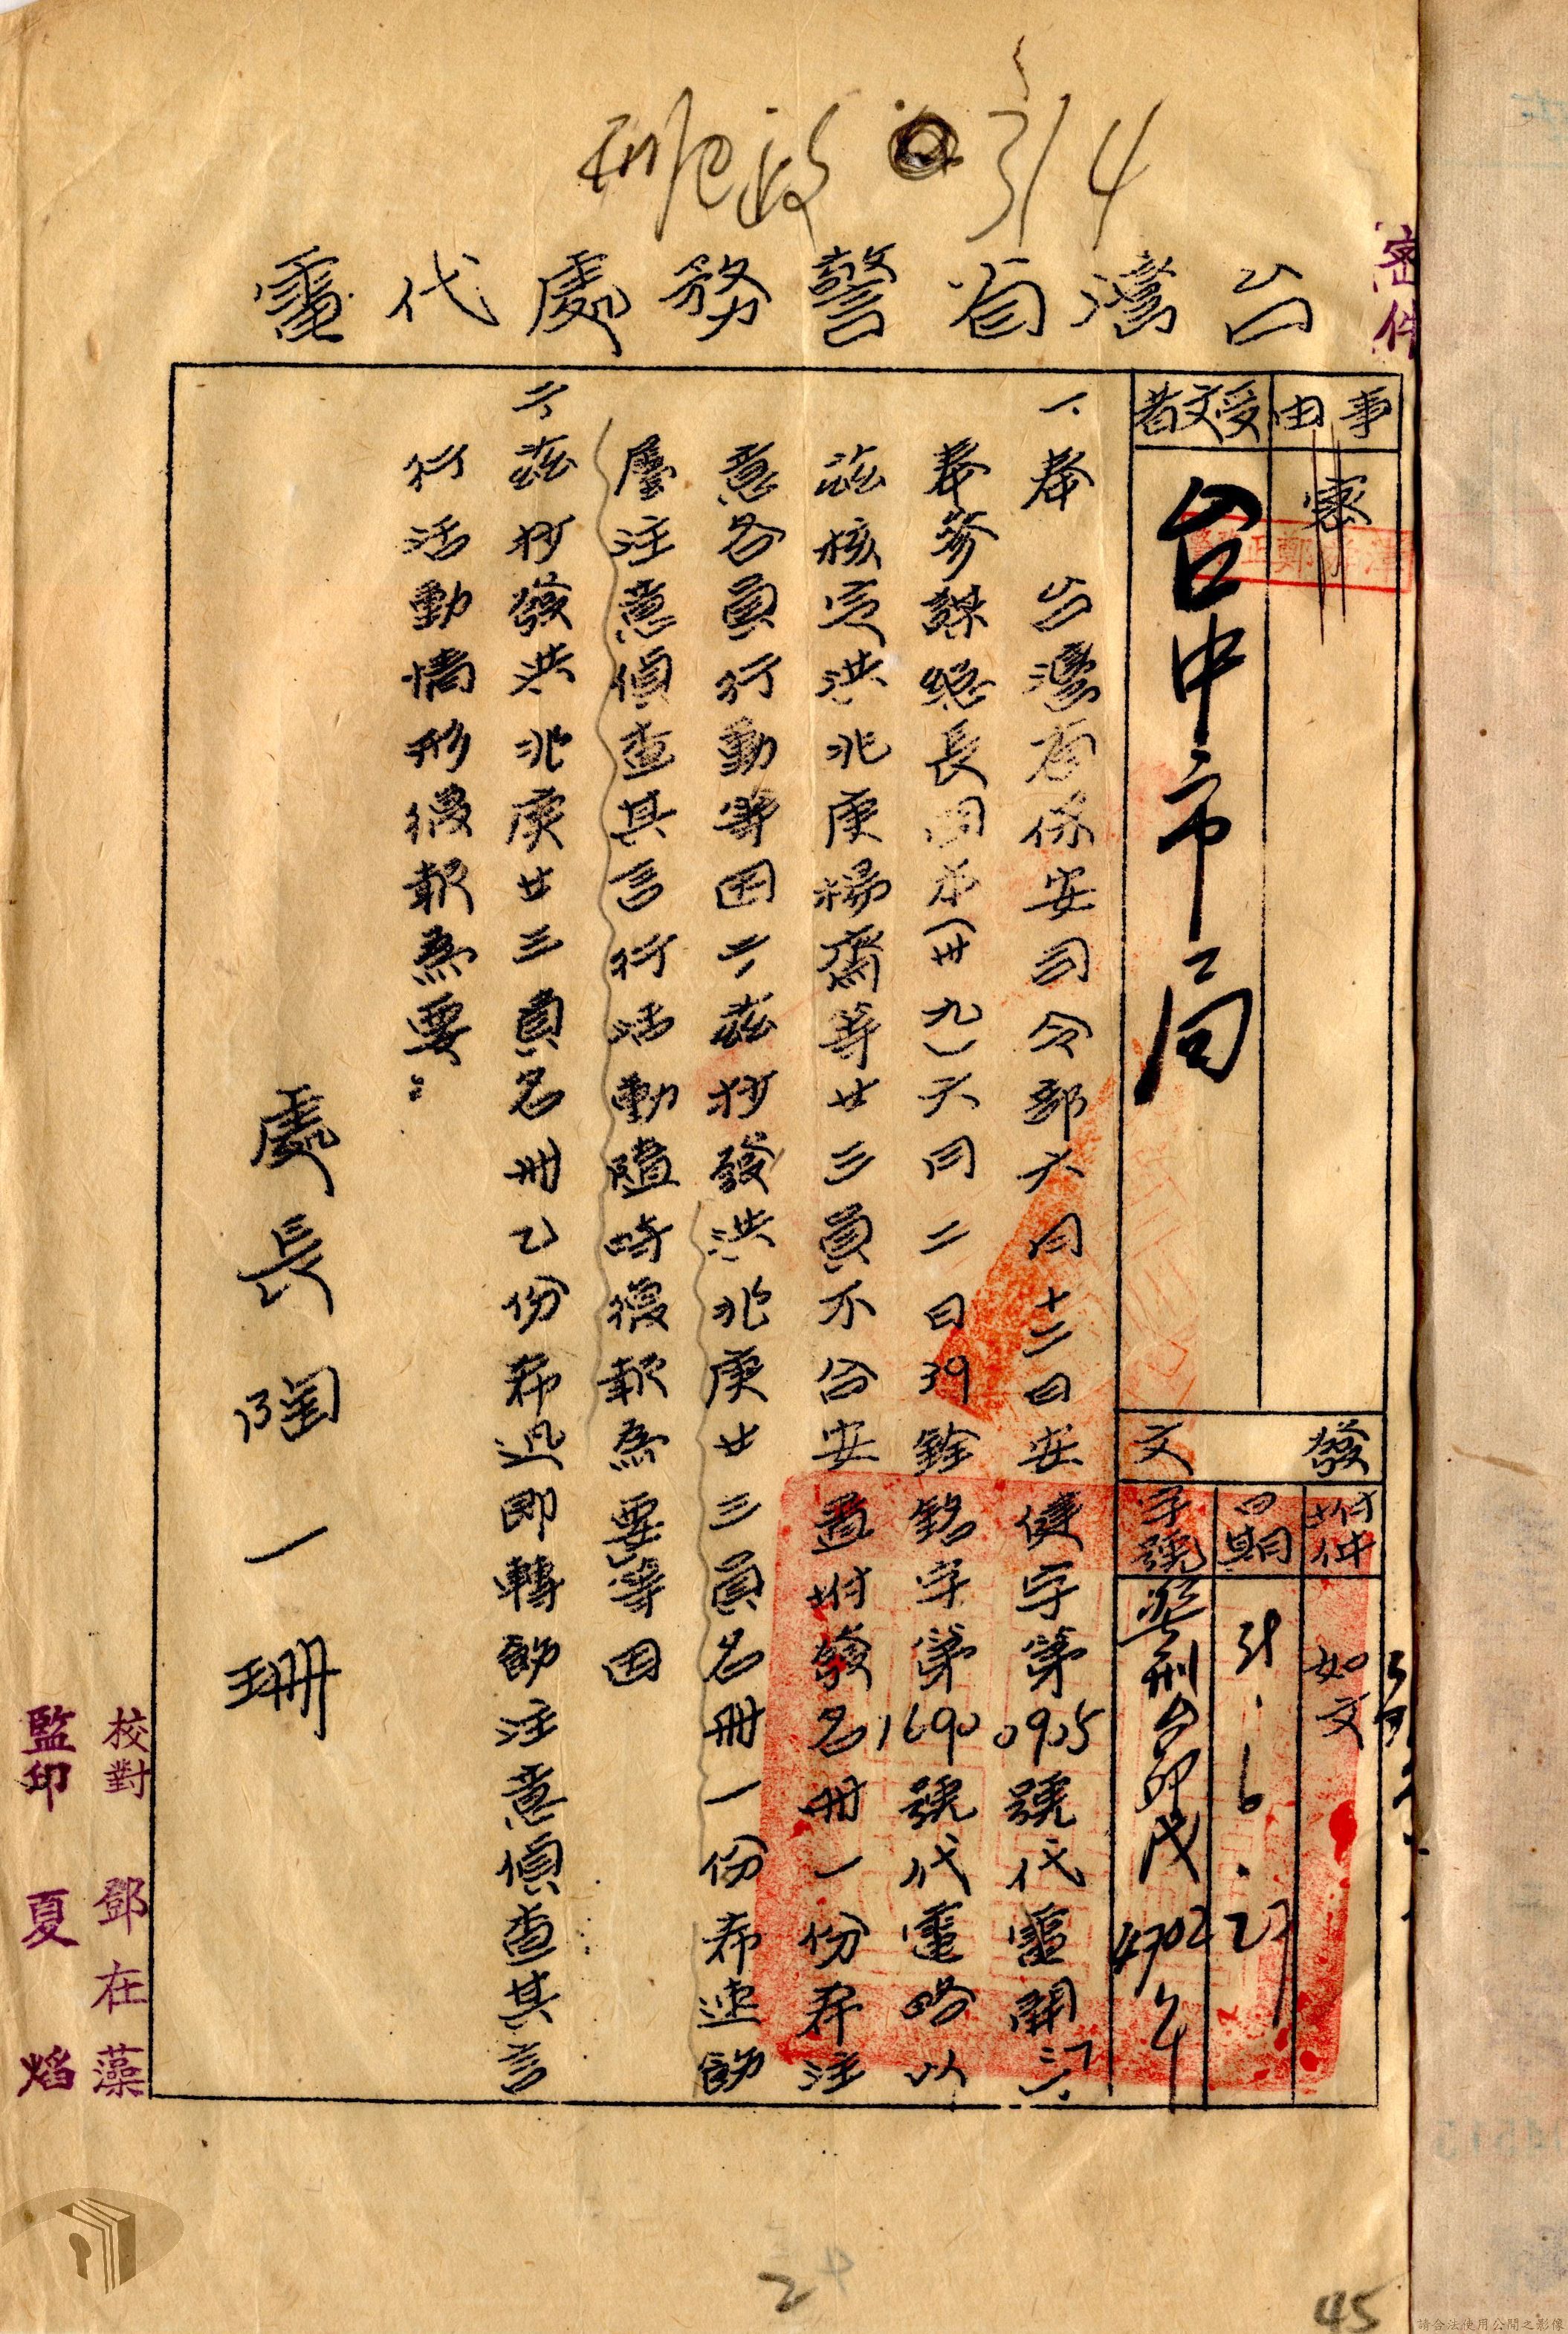 314
密件
台灣省警務處代電
事由
密
受文者
台中市局
發文
附件
如文
日期
39.6.27
字號
4702
一、奉 台灣省保安司令部六月十二日安健字第0905號代電開「一、
奉參謀總長周本(卅九)六月二日39銓銘字第1690號代電略以
茲核定洪兆庚楊齋等廿三員不合安置附發名冊一份希注
意各員行動等因二、茲抄發洪兆庚廿三員名冊一份希速飭
屬注意偵查其言行活動隨時復報為要等因
二、茲抄發洪兆庚廿三員名冊乙份希迅即轉飭注意偵查其言
行活動情形復報為要：
處長陶一珊
校對 鄧在藻
監印 夏焰
2
45
請合法使用公開之影像